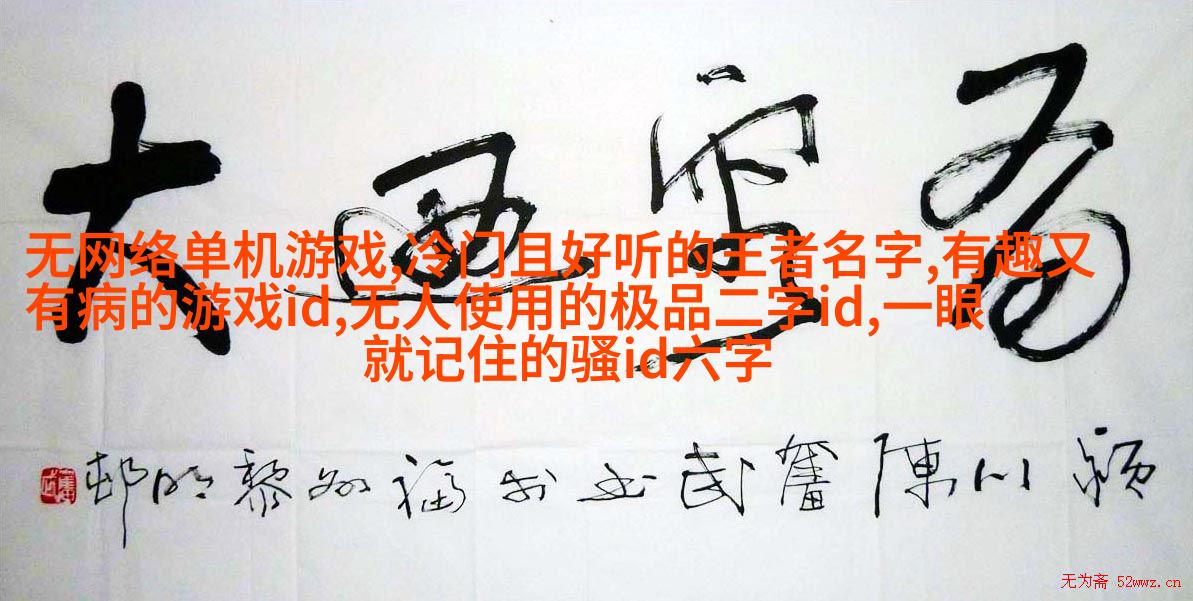 大
无网络单机游戏,冷门且好听的王者名字,有趣又
有病的游戏id,无人使用的极品二字id,一眼
就记住的骚id六字
颍川陳奮武书于福州黎明邨
无为斋 52wwz.cn